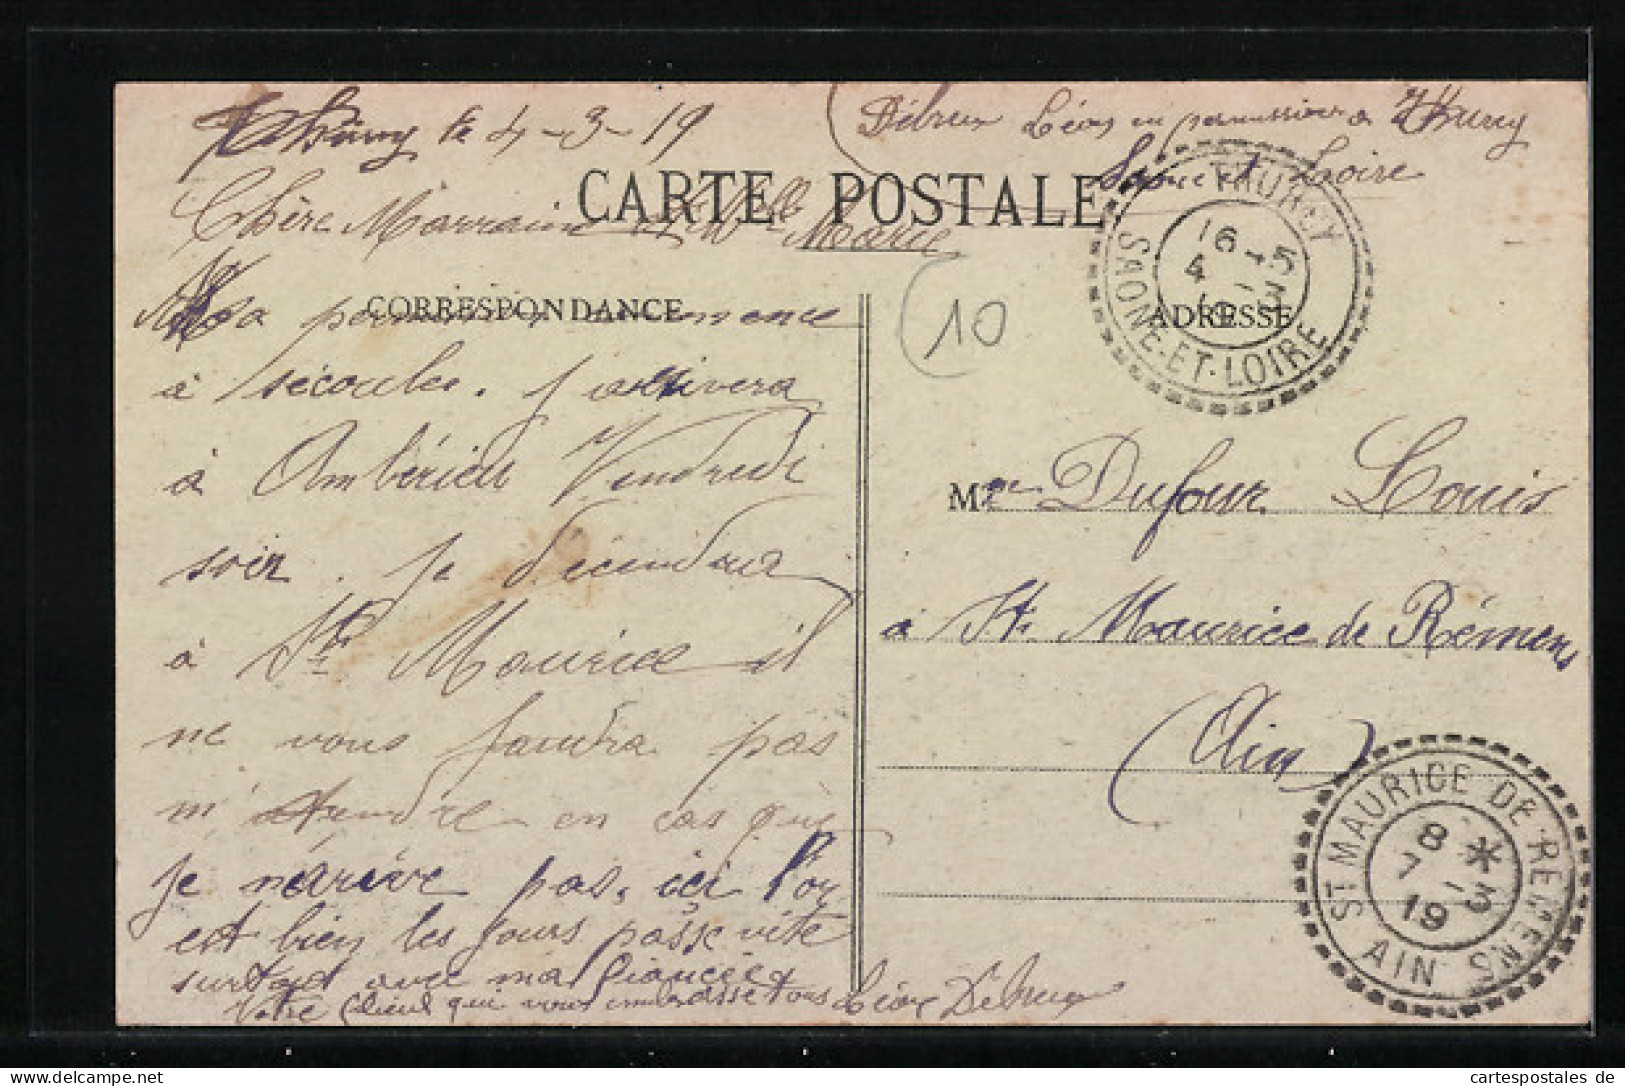 Thurey le 4-3-19
Débreux Léon en permission à Thurey
Saône et Loire
CARTE POSTALE
Chère Marraine et Melle Marie
CORRESPONDANCE
ADRESSE
Ma permission commence
à sécouler. j'arrivera
à Ambérieu Vendredi
soir. je décendrai
à St Maurice il
ne vous faudra pas
m'attendre en cas que
je n'arrive pas, ici l'on
est bien les jours passe vite
surtout avec ma fiancée
Votre filleul qui vous embrasse tous Léon Débreux
10
THUREY
SAONE-ET-LOIRE
16-45
4-3
19
Mr Dufour Louis
à St Maurice de Rémens
(Ain)
ST MAURICE DE REMENS
AIN
8 *
7-3
19
www.ak-ansichtskarten.de
cartespostales de